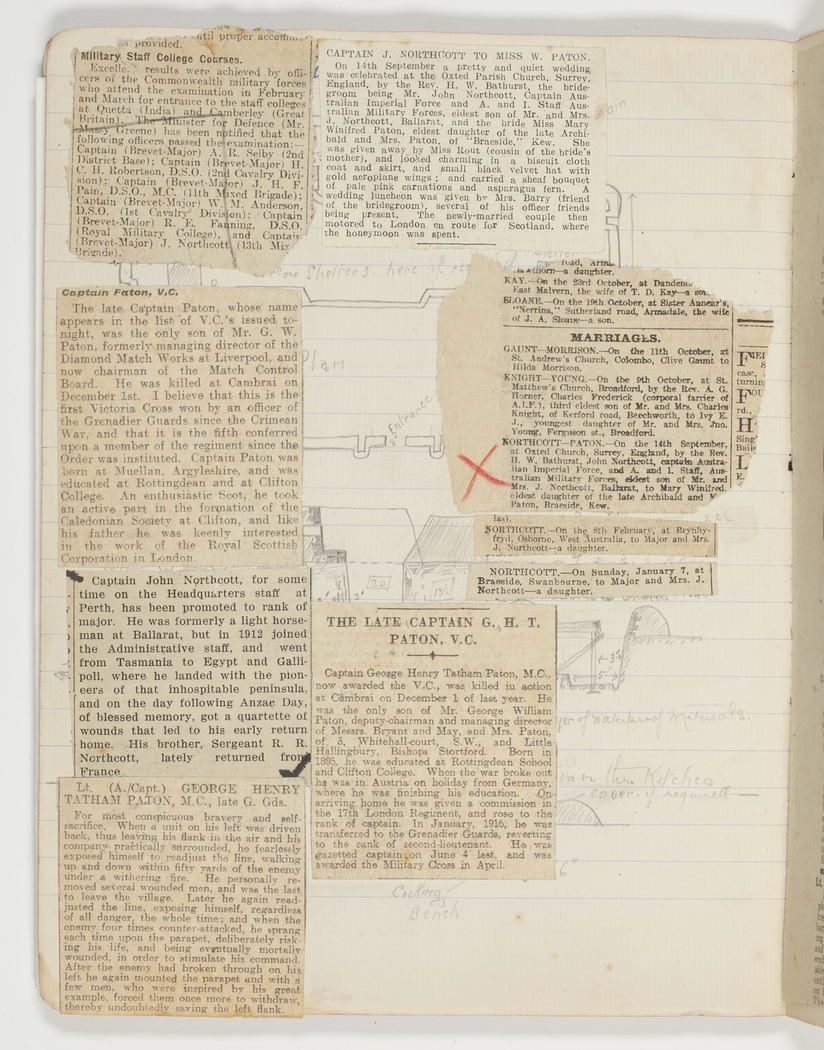 until proper accommo-
provided.
Military Staff College Courses.
Excelle. results were achieved by offi-
cers of the Commonwealth military forces
who attend the examination in February
and March for entrance to the staff colleges
at Quetta (India) and Camberley (Great
Britain). The Minister for Defence (Mr.
Massy Greene) has been notified that the
following officers passed the examination:—
Captain (Brevet-Major) A. R. Selby (2nd
District Base); Captain (Brevet-Major) H.
C. H. Robertson, D.S.O. (2nd Cavalry Divi-
sion); Captain (Brevet-Major) J. H. F.
Pain, D.S.O., M.C. (11th Mixed Brigade);
Captain (Brevet-Major) W. M. Anderson,
D.S.O. (1st Cavalry Division); Captain
(Brevet-Major) R. E. Fanning, D.S.O.
(Royal Military College), and Captain
(Brevet-Major) J. Northcott (13th Mix
Brigade).
CAPTAIN J. NORTHCOTT TO MISS W. PATON.
On 14th September a pretty and quiet wedding
was celebrated at the Oxted Parish Church, Surrey,
England, by the Rev. H. W. Bathurst, the bride-
groom being Mr. John Northcott, Captain Aus-
tralian Imperial Force and A. and I. Staff Aus-
tralian Military Forces, eldest son of Mr. and Mrs.
J. Northcott, Ballarat, and the bride Miss Mary
Winifred Paton, eldest daughter of the late Archi-
bald and Mrs. Paton, of "Braeside," Kew. She
was given away by Miss Rout (cousin of the bride's
mother), and looked charming in a biscuit cloth
coat and skirt, and small black velvet hat with
gold aeroplane wings; and carried a sheaf bouquet
of pale pink carnations and asparagus fern. A
wedding luncheon was given by Mrs. Barry (friend
of the bridegroom), several of his officer friends
being present. The newly-married couple then
motored to London en route for Scotland, where
the honeymoon was spent.
More Shelters here if req
Captain Paton, V.C.
The late Captain Paton, whose name
appears in the list of V.C.'s issued to-
night, was the only son of Mr. G. W.
Paton, formerly managing director of the
Diamond Match Works at Liverpool, and
now chairman of the Match Control
Board. He was killed at Cambrai on
December 1st. I believe that this is the
first Victoria Cross won by an officer of
the Grenadier Guards since the Crimean
War, and that it is the fifth conferred
upon a member of the regiment since the
Order was instituted. Captain Paton was
born at Muellan, Argyleshire, and was
educated at Rottingdean and at Clifton
College. An enthusiastic Scot, he took
an active part in the formation of the
Caledonian Society at Clifton, and like
his father he was keenly interested
in the work of the Royal Scottish
Corporation in London.
Plan
Entrance
road, Arma
—a daughter.
KAY.—On the 23rd October, at Dandeno
East Malvern, the wife of T. D. Kay—a son.
SLOANE.—On the 19th October, at Sister Annear's,
"Nerrina," Sutherland road, Armadale, the wife
of J. A. Sloane—a son.
MARRIAGES.
GAUNT—MORRISON.—On the 11th October, at
St. Andrew's Church, Colombo, Clive Gaunt to
Hilda Morrison.
KNIGHT—YOUNG.—On the 9th October, at St.
Matthew's Church, Broadford, by the Rev. A. G.
Horner, Charles Frederick (corporal farrier of
A.I.F.), third eldest son of Mr. and Mrs. Charles
Knight, of Kerford road, Beechworth, to Ivy E.
J., youngest daughter of Mr. and Mrs. Jno.
Young, Ferguson st., Broadford.
NORTHCOTT—PATON.—On the 14th September,
at Oxted Church, Surrey, England, by the Rev.
H. W. Bathurst, John Northcott, captain Austra-
lian Imperial Force, and A. and I. Staff, Aus-
tralian Military Forces, eldest son of Mr. and
Mrs. J. Northcott, Ballarat, to Mary Winifred,
eldest daughter of the late Archibald and M
Paton, Braeside, Kew.
case,
turnin
rd.,
Sing
E.
las).
NORTHCOTT.—On the 8th February, at Brynhy-
fryd, Osborne, West Australia, to Major and Mrs.
J. Northcott—a daughter.
NORTHCOTT.—On Sunday, January 7, at
Braeside, Swanbourne, to Major and Mrs. J.
Northcott—a daughter.
Captain John Northcott, for some
time on the Headquarters staff at
Perth, has been promoted to rank of
major. He was formerly a light horse-
man at Ballarat, but in 1912 joined
the Administrative staff, and went
from Tasmania to Egypt and Galli-
poli, where he landed with the pion-
eers of that inhospitable peninsula,
and on the day following Anzac Day,
of blessed memory, got a quartette of
wounds that led to his early return
home. His brother, Sergeant R. R.
Northcott, lately returned from
France.
THE LATE CAPTAIN G. H. T.
PATON, V.C.
Captain George Henry Tatham Paton, M.C.,
now awarded the V.C., was killed in action
at Cambrai on December 1 of last year. He
was the only son of Mr. George William
Paton, deputy-chairman and managing director
of Messrs. Bryant and May, and Mrs. Paton,
of 3, Whitehall-court, S.W., and Little
Hallingbury, Bishops Stortford. Born in
1895, he was educated at Rottingdean School
and Clifton College. When the war broke out
he was in Austria on holiday from Germany,
where he was finishing his education. On
arriving home he was given a commission in
the 17th London Regiment, and rose to the
rank of captain. In January, 1916, he was
transferred to the Grenadier Guards, reverting
to the rank of second-lieutenant. He was
gazetted captain on June 4 last, and was
awarded the Military Cross in April.
Lt. (A./Capt.) GEORGE HENRY
TATHAM PATON, M.C., late G. Gds.
For most conspicuous bravery and self-
sacrifice. When a unit on his left was driven
back, thus leaving his flank in the air and his
company practically surrounded, he fearlessly
exposed himself to readjust the line, walking
up and down within fifty yards of the enemy
under a withering fire. He personally re-
moved several wounded men, and was the last
to leave the village. Later he again read-
justed the line, exposing himself, regardless
of all danger, the whole time; and when the
enemy four times counter-attacked, he sprang
each time upon the parapet, deliberately risk-
ing his life, and being eventually mortally
wounded, in order to stimulate his command.
After the enemy had broken through on his
left he again mounted the parapet and with a
few men, who were inspired by his great
example, forced them once more to withdraw,
thereby undoubtedly saving the left flank.
of waterproof materials.
thru Kitchen
cover if required
Cooking
Bench